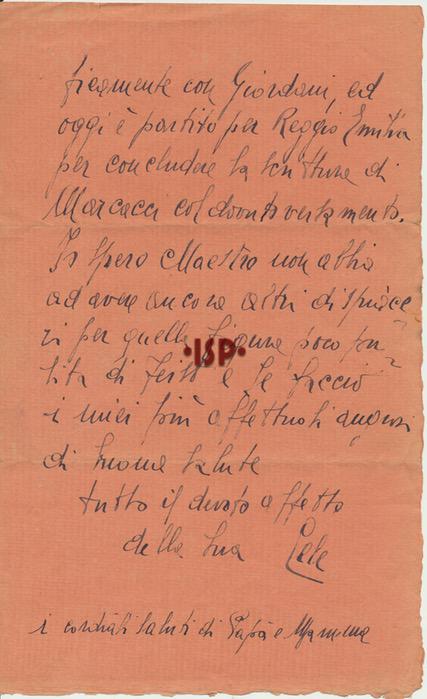 ficamente con Giordani, ed
oggi è partito per Reggio Emilia
per concludere la scrittura di
Marcacci col dovuto versamento.
Io spero Maestro non abbia
ad avere ancora altri dispiace=
ri per quella figura poco pu=
lita di Feito e Le faccio
i miei più affettuosi auguri
di buona salute
tutto il devoto affetto
della Sua
i cordiali saluti di Papà e Mamma
·ISP·